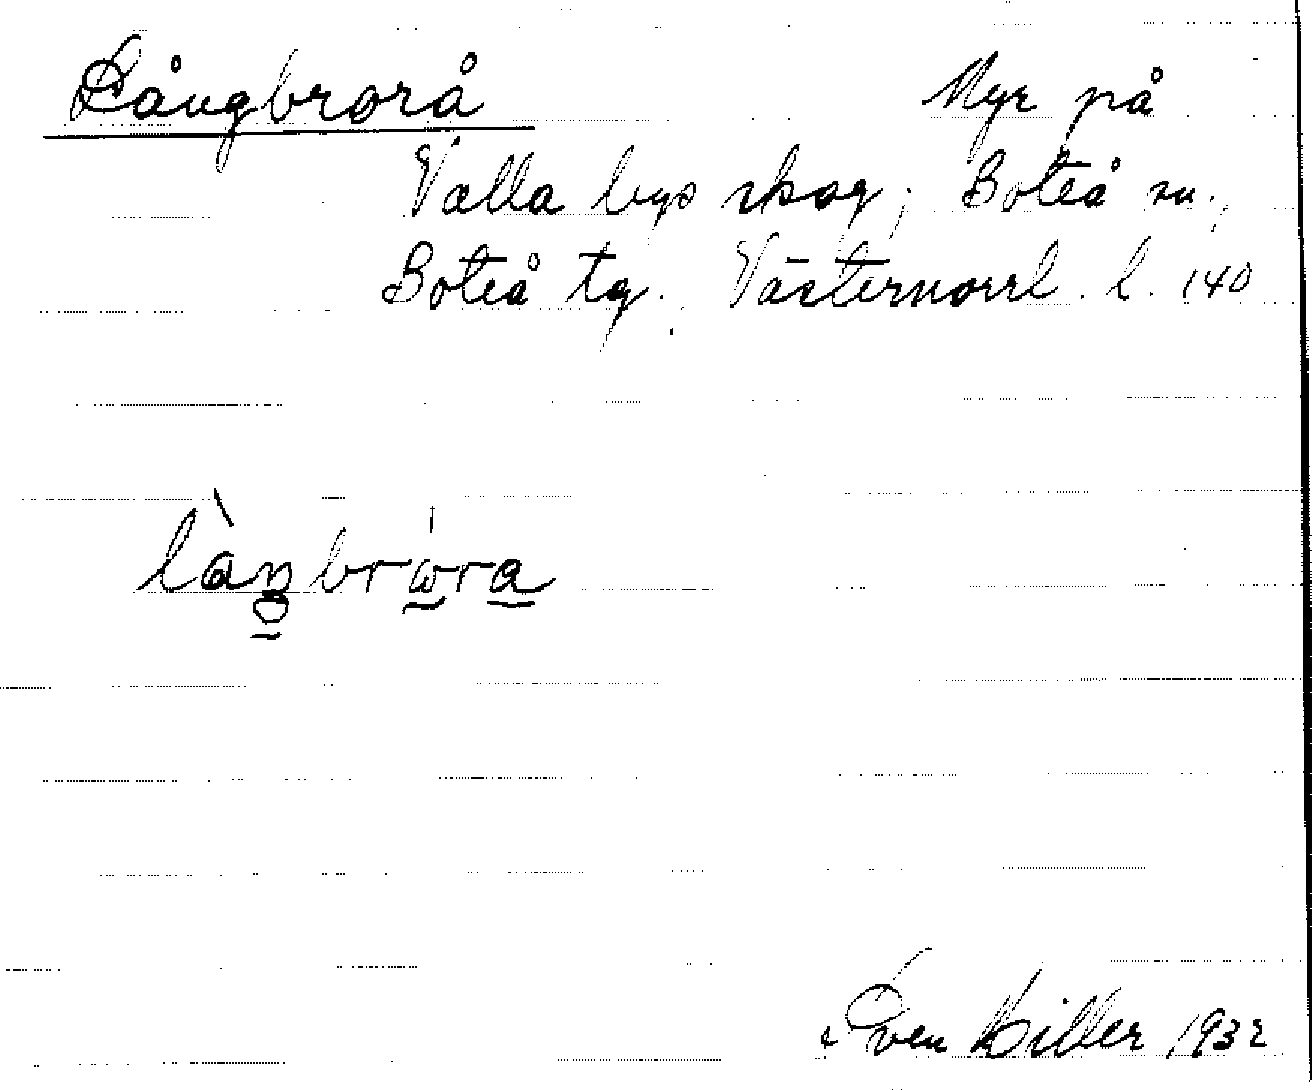 Långbrorå Myr på
Valla bys skog, Boteå sn.,
Boteå tg., Västernorrl. l. 140
Sven Hiller 1932